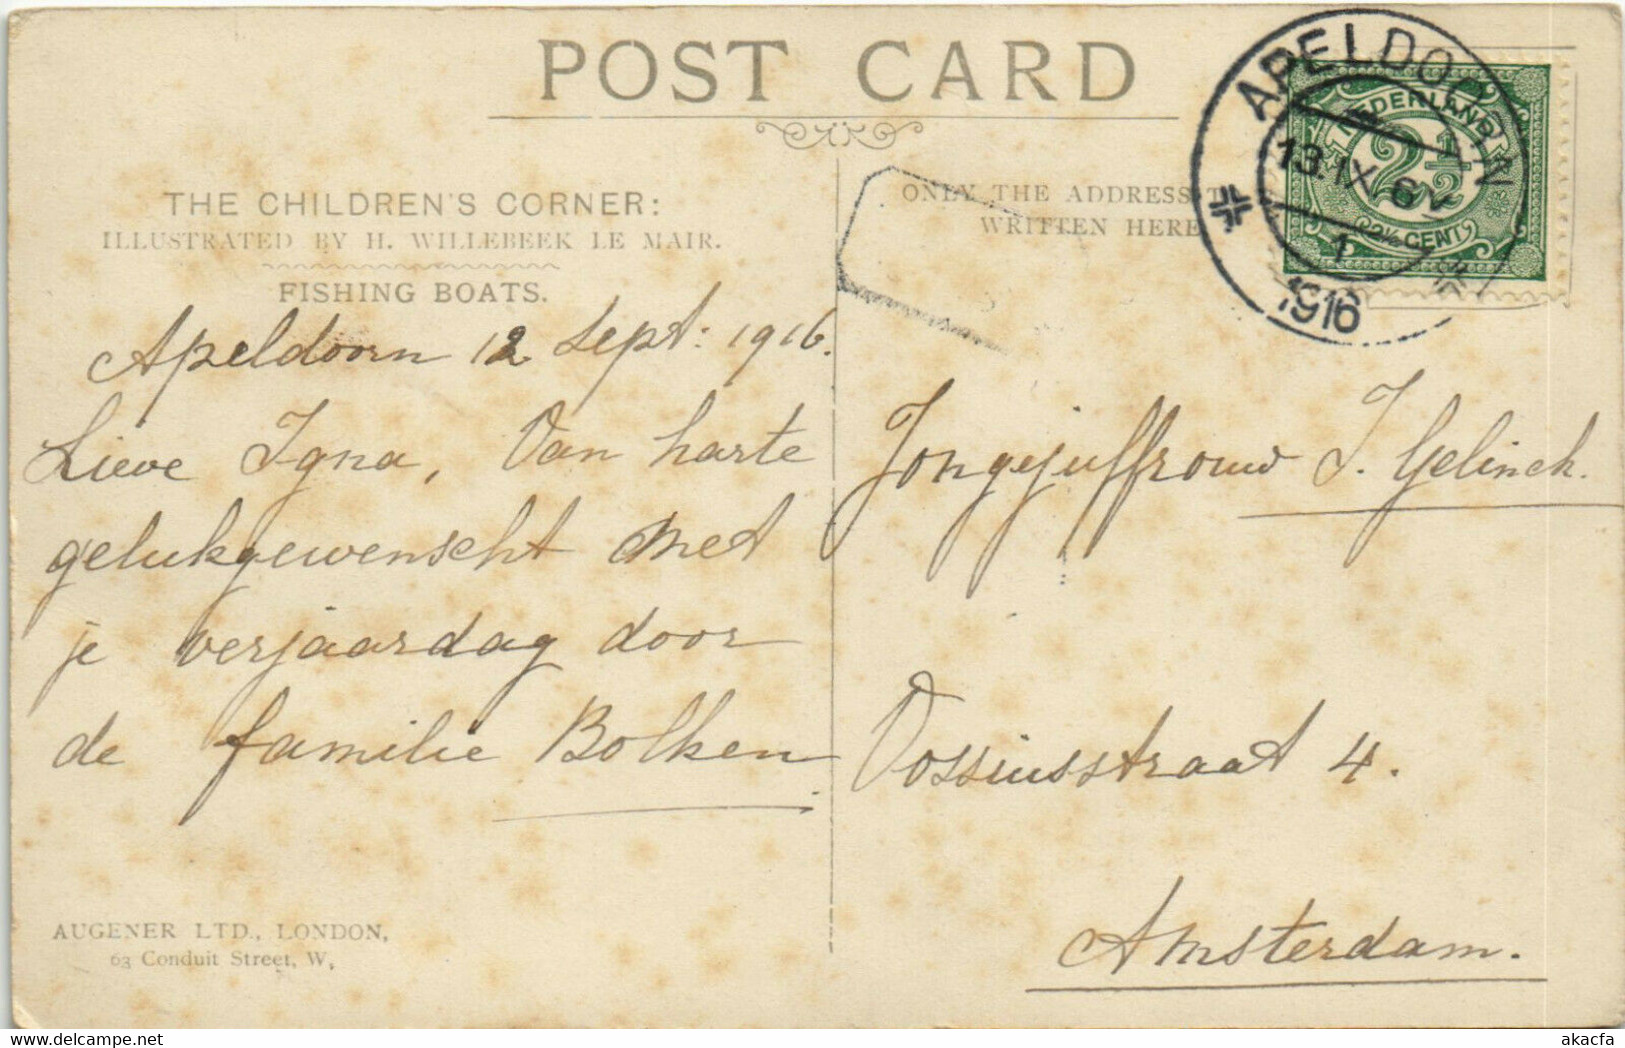 POST CARD
THE CHILDREN'S CORNER:
ILLUSTRATED BY H. WILLEBEEK LE MAIR.
FISHING BOATS.
Apeldoorn 12 Sept: 1916.
Lieve Igna, Van harte
gelukgewenscht met
je verjaardag door
de familie Bolken
AUGENER LTD., LONDON,
63 Conduit Street, W,
ONLY THE ADDRESS
WRITTEN HERE
APELDOORN
13.IX.
1
1916
NEDERLAND
2½
2½ CENT
Jongejuffrouw I. Gelinck.
Vossiusstraat 4.
Amsterdam.
akacfa